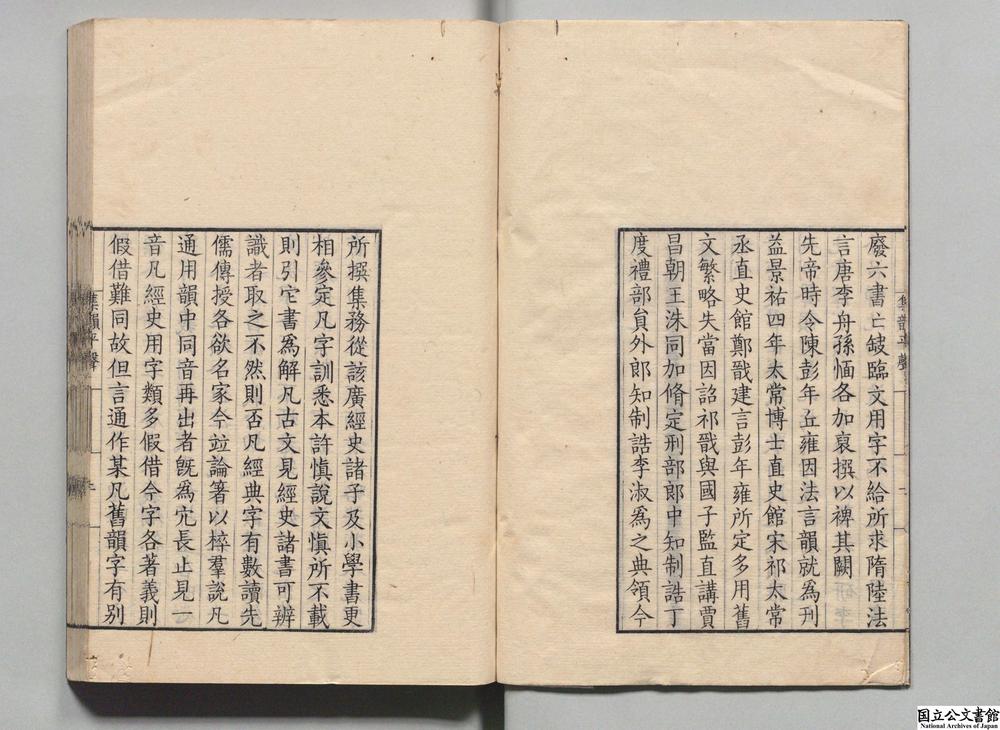 廢六書亡缺臨文用字不給所求隋陸法
言唐李舟孫愐各加裒撰以裨其闕
先帝時令陳彭年丘雍因法言韻就爲刋
益景祐四年太常博士直史館宋祁太常
丞直史館鄭戩建言彭年雍所定多用舊
文繁略失當因詔祁戩與國子監直講賈
昌朝王洙同加脩定刑部郎中知制誥丁
度禮部貟外郎知制誥李淑爲之典領今
所撰集務從該廣經史諸子及小學書更
相參定凡字訓悉本許愼說文愼所不載
則引它書爲解凡古文見經史諸書可辨
識者取之不然則否凡經典字有數讀先
儒傳授各欲名家今竝論著以稡羣說凡
通用韻中同音再出者旣爲冗長止見一
音凡經史用字類多假借今字各著義則
假借難同故但言通作某凡舊韻字有別
集韻平聲
集韻平聲
国立公文書館
National Archives of Japan